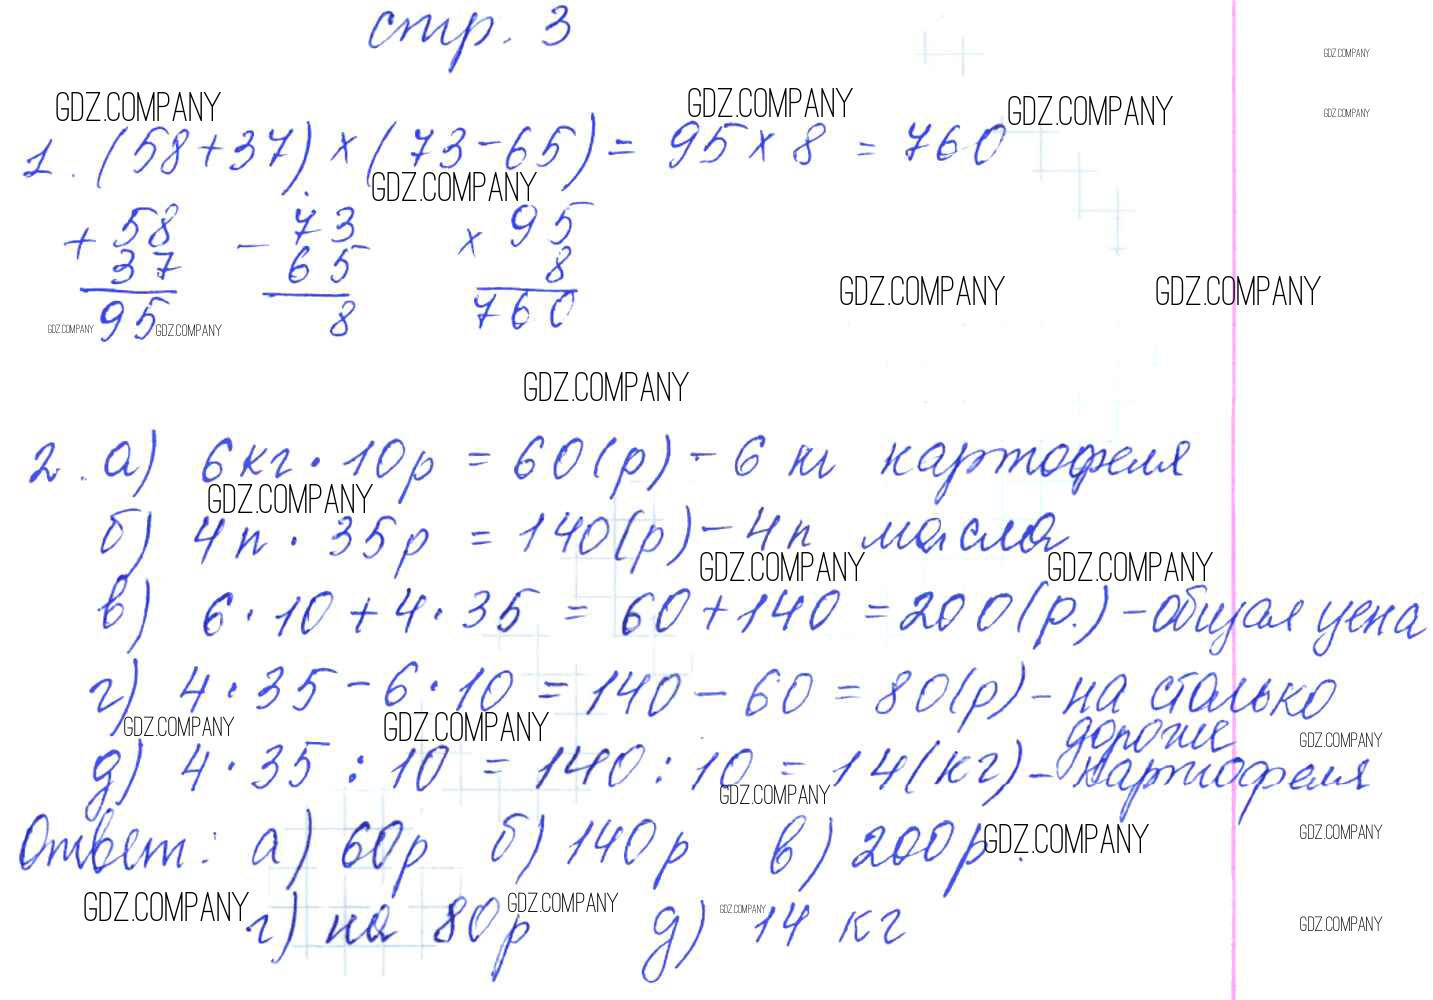 стр. 3
GDZ.COMPANY
GDZ.COMPANY GDZ.COMPANY GDZ.COMPANY GDZ.COMPANY
1. (58+37) × (73-65) = 95 × 8 = 760
GDZ.COMPANY
+ 58 - 73 × 95
37 65 8
95 8 760
GDZ.COMPANY GDZ.COMPANY
GDZ.COMPANY GDZ.COMPANY
GDZ.COMPANY
2. а) 6 кг · 10 р = 60 (р) - 6 кг картофеля
GDZ.COMPANY
б) 4 п · 35 р = 140 (р) - 4 п масла
GDZ.COMPANY GDZ.COMPANY
в) 6 · 10 + 4 · 35 = 60 + 140 = 200 (р.) - общая цена
г) 4 · 35 - 6 · 10 = 140 - 60 = 80 (р) - на столько
дороже
GDZ.COMPANY GDZ.COMPANY GDZ.COMPANY
д) 4 · 35 : 10 = 140 : 10 = 14 (кг) - картофеля
GDZ.COMPANY
Ответ: а) 60 р б) 140 р в) 200 р.
GDZ.COMPANY GDZ.COMPANY
г) на 80 р д) 14 кг
GDZ.COMPANY GDZ.COMPANY GDZ.COMPANY GDZ.COMPANY